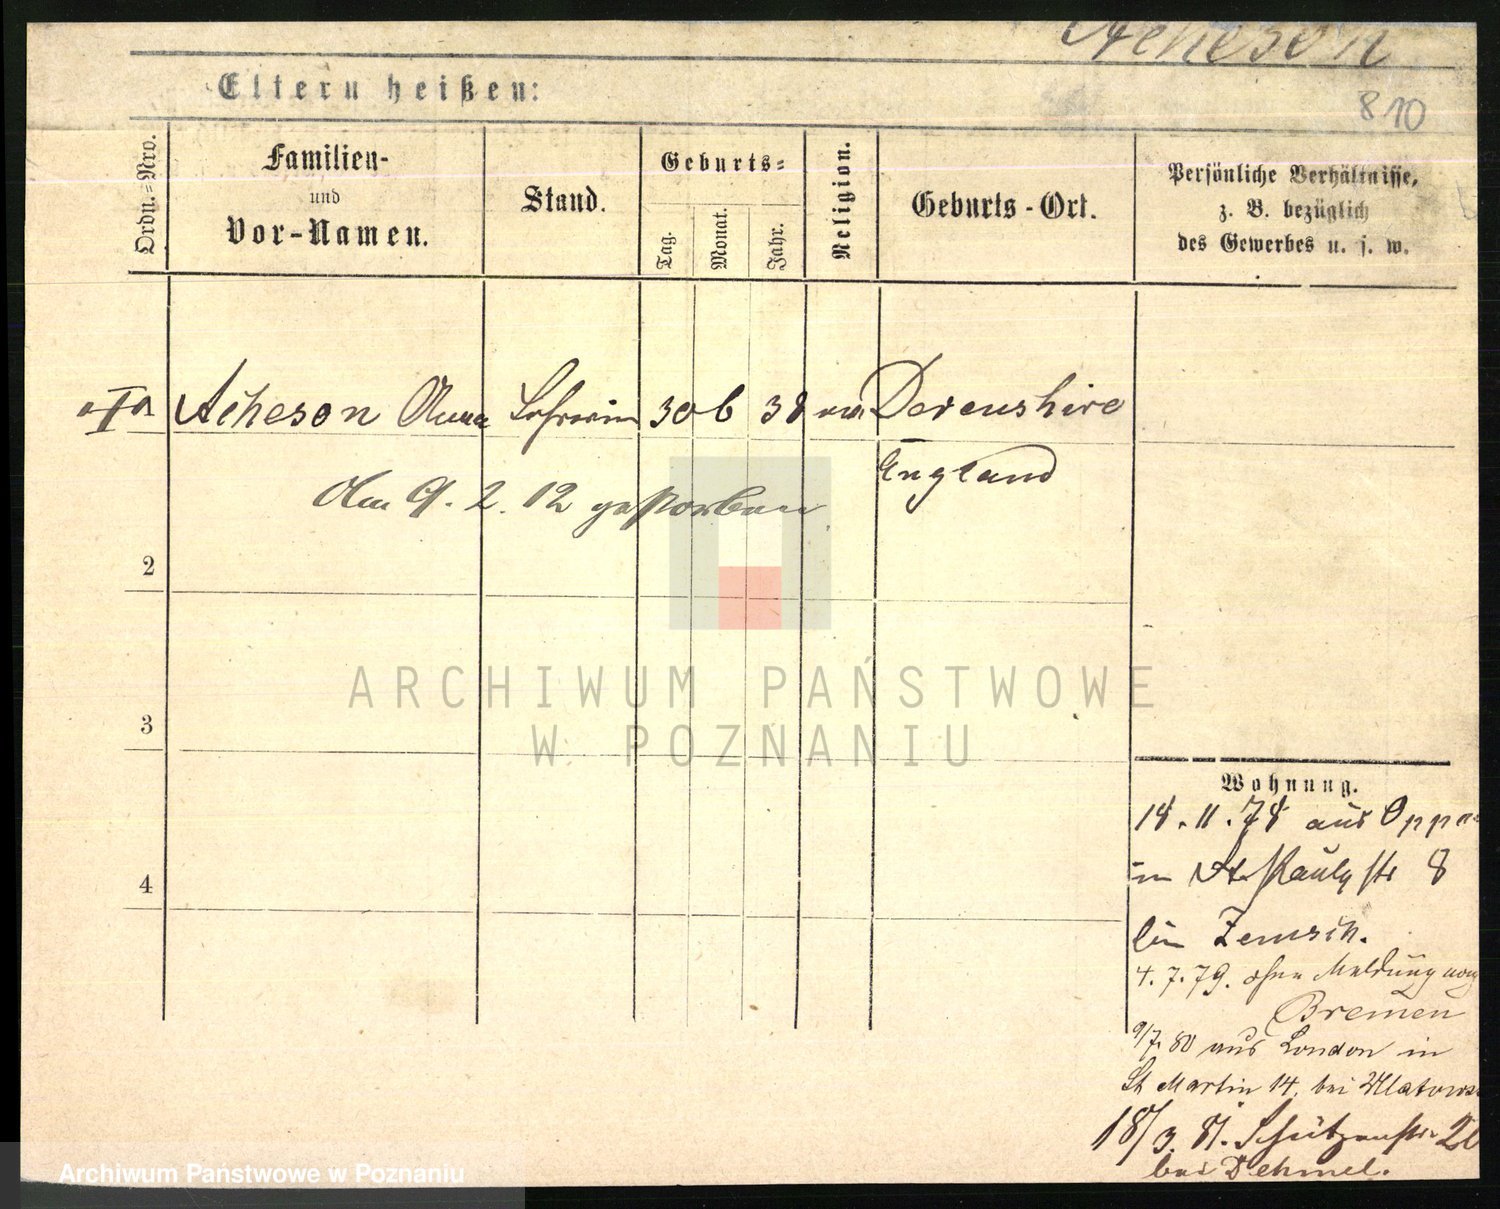 Acheson
810
Eltern heißen:
Ordn.=Nro.
Familien-
und
Vor-Namen.
Stand.
Geburts=
Tag.
Monat.
Jahr.
Religion.
Geburts-Ort.
Persönliche Verhältnisse,
z. B. bezüglich
des Gewerbes u. s. w.
Acheson Anna Lehrerin 30 6 38 Devenshire
England
Am 9. 2. 12 gestorben
2
3
4
ARCHIWUM PAŃSTWOWE
W POZNANIU
Wohnung.
18. 11. 78 aus
in St. Pauly str 8
bei Zemsch.
4. 7. 79. ohne Meldung nach
Bremen
9/7. 80 aus London in
St Martin 14. bei
18/3. 81. Schützenstr.
bei Dehmel.
Archiwum Państwowe w Poznaniu